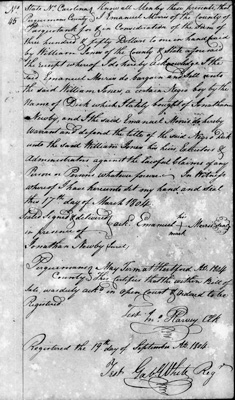 No 45
State No. Carolina Know all Men by these presents, that
Perquimans County I Emanuel Morris of the County of
Pasquotank for & in Consideration of the Sum of
three hundred & fifty Dollars to me in hand paid
by William Jones of the County & State aforesaid
the receipt whereof I do hereby acknowledge I the
said Emanuel Morris do bargain and Sell unto
the said William Jones, a certain Negro boy by the
Name of Dick which I lately bought of Jonathan
Newby, and I the said Emanuel Morris do hereby
warrant and defend the title of the said Negro Dick
unto the said William Jones his heirs, Executors &
Administrators against the lawful Claims of any
Person or Persons whatsoever. In Witness
whereof I have hereunto set my hand and seal
this 17th day of March 1804.
Sealed Signed & delivered
in presence of Emanuel his mark Morris Seal
Jonathan Newby Jurat.
Perquimans May Term at Hertford At. 1804
County. This Certifies that the within Bill of
Sale, was duly ack'd in open Court & ordered to be
Registered
Test Jno Harvey Clk
Registered the 19th day of September At. 1804
Test White Regr